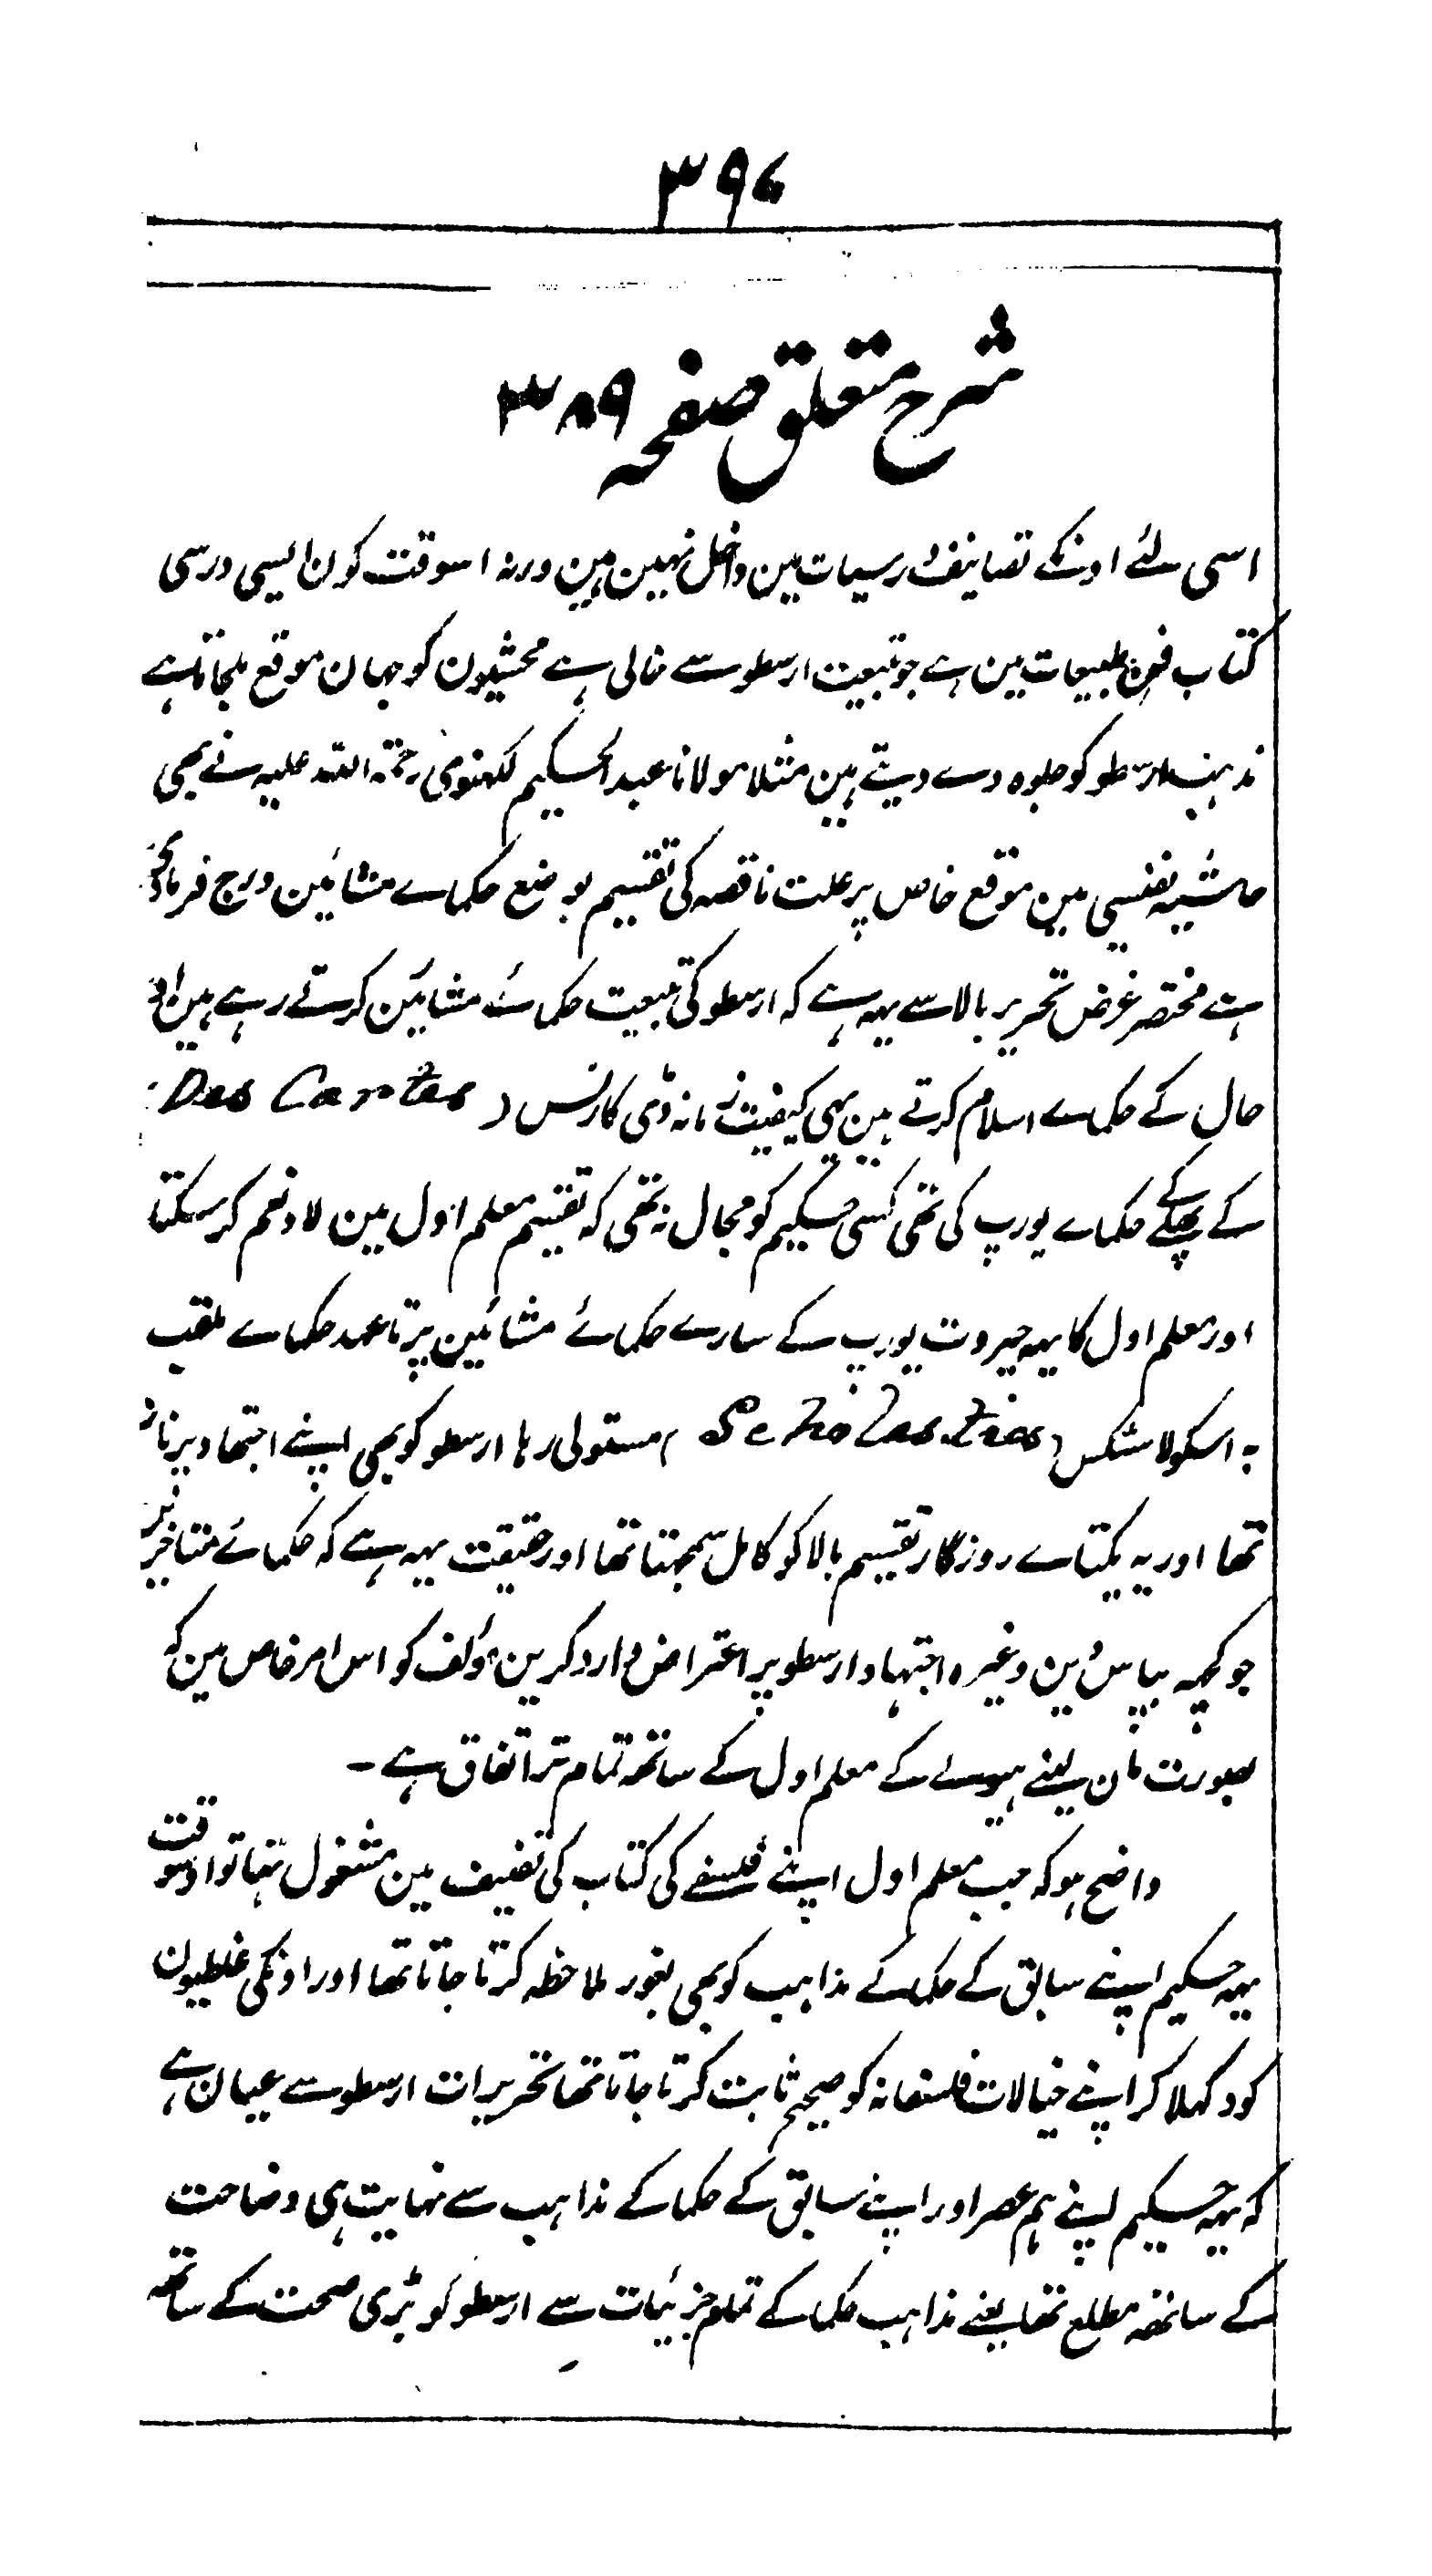 ۳۹۷
شرح متعلق صفحہ ۳۸۹
اسی لئے اونکے تصانیف درسیات مین داخل نہین ہین ورنہ اسوقت کون ایسی درسی
کتاب فن طبیعات مین ہے جو تبعیت ارسطو سے خالی ہے محشیون کو جہان موقع ملجاتا ہے
مذہب ارسطو کو جلوہ دے دیتے ہین مثلا مولانا عبد الحکیم لکھنوی رحمۃ اللہ علیہ نے بھی
حاشیہ نفیسی مین موقع خاص پر علت ناقصہ کی تقسیم بوضع حکماے مشائین درج فرمادی
ہے مختصر غرض تحریر بالا سے یہہ ہے کہ ارسطو کی تبعیت حکمائے مشائین کرتے رہے ہین اور
حال کے حکماے اسلام کرتے ہین یہی کیفیت زمانہ ڈی کارٹس ( Des Cartes
کے پہلے کے حکماے یورپ کی تھی کسی حکیم کو مجال نہ تھی کہ تقسیم معلم اول مین لا و نعم کر سکتا
اور معلم اول کا یہہ جبروت یورپ کے سارے حکمائے مشائین پر تا عہد حکماے ملقب
بہ اسکولاسٹکس ( Scholastics ) مستولی رہا ارسطو کو بھی اپنے اجتہاد پر ناز
تھا اور یہ یکتاے روزگار تقسیم بالا کو کامل سمجہتا تھا اور حقیقت یہہ ہے کہ حکمائے متاخرین
جو کچہہ بپاس دین وغیرہ اجتہاد ارسطو پر اعتراض وارد کرین مؤلف کو اس امر خاص مین کہ
بصورت مان لینے ہیولے کے معلم اول کے ساتھ تمام تر اتفاق ہے ۔
واضح ہو کہ جب معلم اول اپنے فلسفے کی کتاب کی تصنیف مین مشغول تہا تو اوسوقت
یہہ حکیم اپنے سابق کے حکما کے مذاہب کو بھی بغور ملاحظہ کرتا جاتا تھا اور اونکی غلطیون
کو دکہلا کر اپنے خیالات فلسفانہ کو صحیح ثابت کرتا جاتا تھا تحریرات ارسطو سے عیان ہے
کہ یہہ حکیم اپنے ہم عصر اور اپنے سابق کے حکما کے مذاہب سے نہایت ہی وضاحت
کے ساتھہ مطلع تھا یعنے مذاہب حکما کے تمام جزئیات سے ارسطو کو بڑی صحت کے ساتھہ